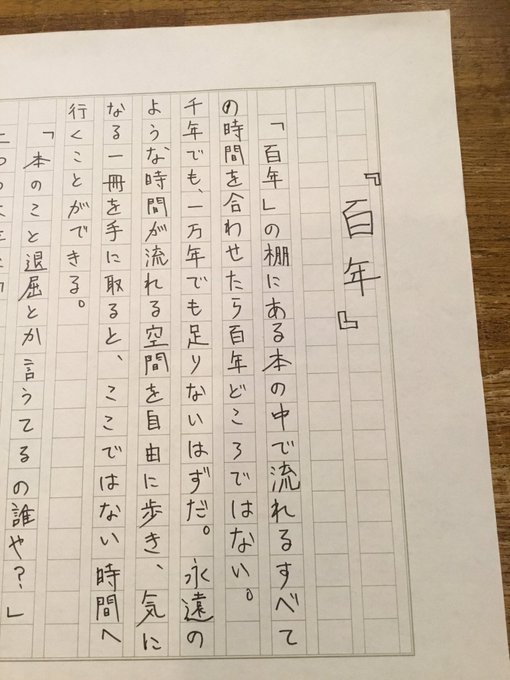 『百年』
「百年」の棚にある本の中で流れるすべて
の時間を合わせたら百年どころではない。
千年でも、一万年でも足りないはずだ。永遠の
ような時間が流れる空間を自由に歩き、気に
なる一冊を手に取ると、ここではない時間へ
行くことができる。
「本のこと退屈とか言うてるの誰や？」